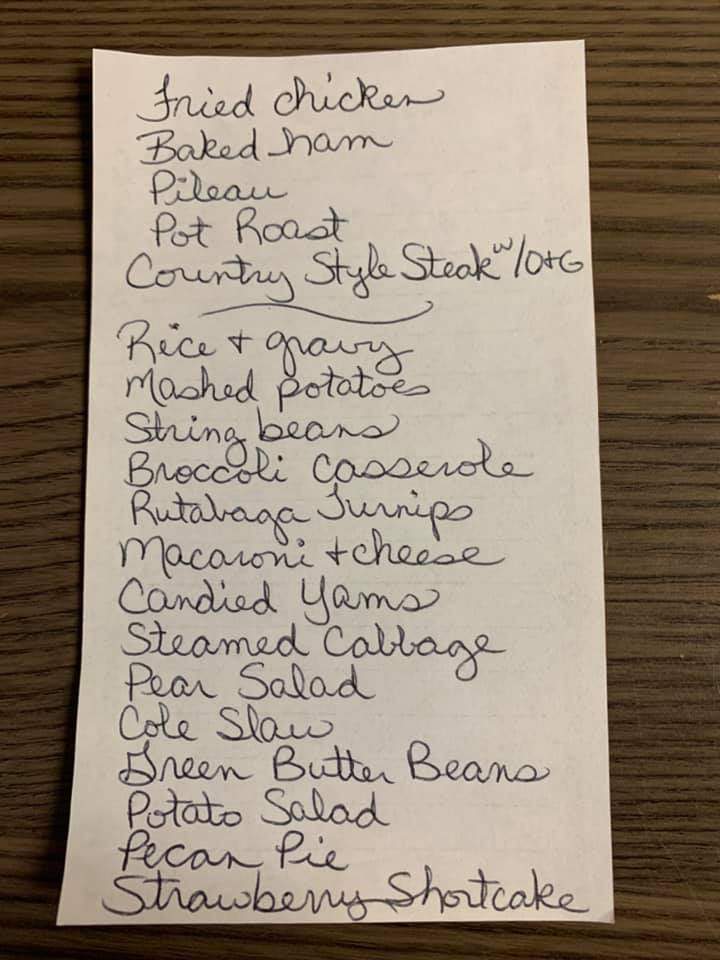 Fried chicken
Baked ham
Pileau
Pot Roast
Country Style Steak w/O+G
Rice + gravy
Mashed potatoes
String beans
Broccoli Casserole
Rutabaga Turnips
Macaroni + cheese
Candied Yams
Steamed Cabbage
Pear Salad
Cole Slaw
Green Butter Beans
Potato Salad
Pecan Pie
Strawberry Shortcake